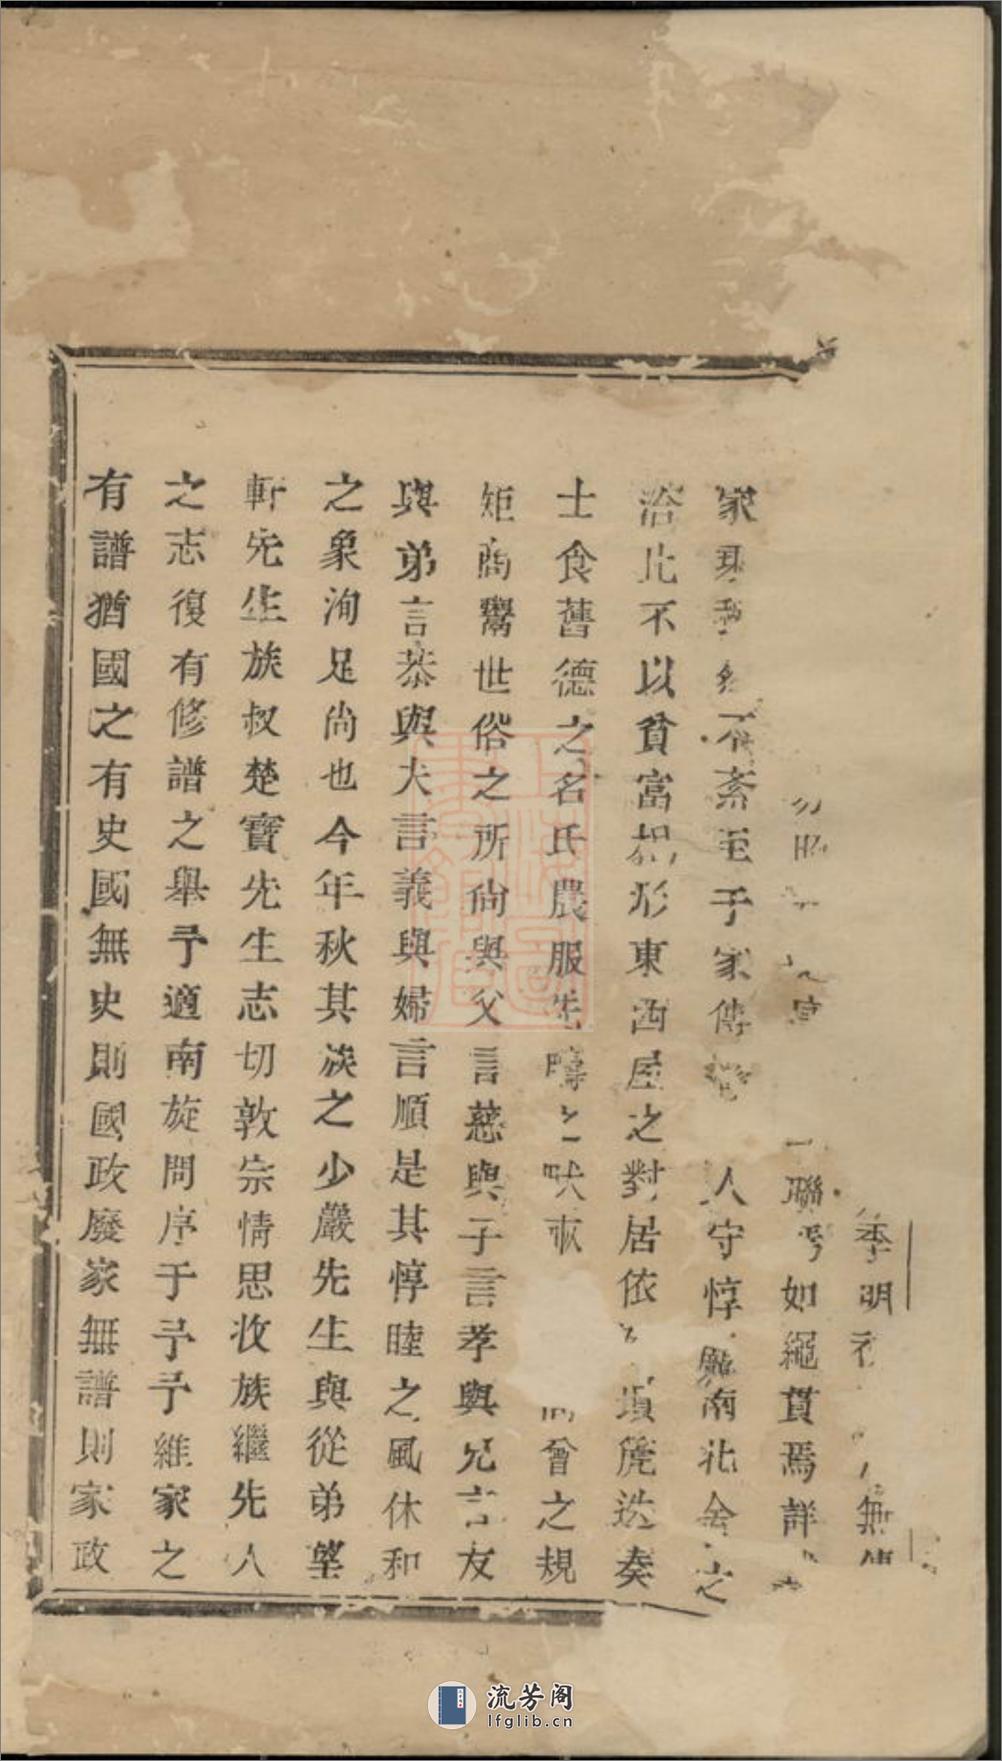 季明
無傳
聯
如繩貫焉詳
家
不紊至予家傳
人守惇
南北
之
洽比不以貧富相形東西屋之對居依
塤篪迭奏
士食舊德之名氏農服先疇之畎畝
會之規
矩商鬻世俗之所尚與父言慈與子言孝與兄言友
與弟言恭與夫言義與婦言順是其惇睦之風休和
之象洵足尚也今年秋其族之少巖先生與從弟望
軒先生族叔楚寶先生志切敦宗情思收族繼先人
之志復有修譜之舉予適南旋問序于予予維家之
有譜猶國之有史國無史則國政廢家無譜則家政
流芳阁
lfglib.cn